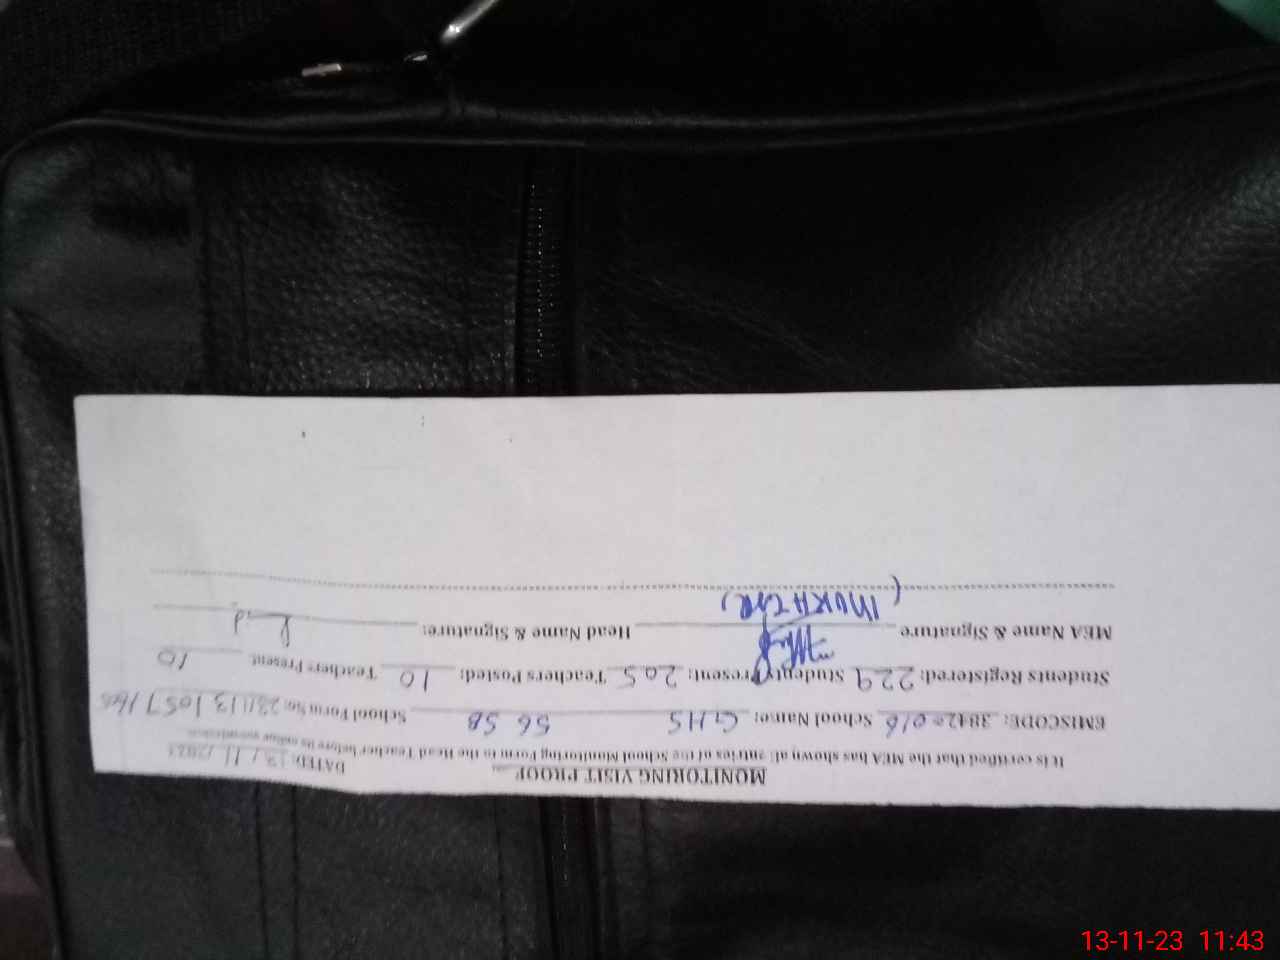 MONITORING VISIT PROOF
DATED: 13/11/2023
It is certified that the MEA has shown all entries of the School Monitoring Form to the Head Teacher before its online
EMISCODE: 38420016 School Name: GHS 56 SB School Form No: 231113 1057
Students Registered: 229 Students Present: 205 Teachers Posted: 10 Teachers Present 10
MEA Name & Signature Head Name & Signature:
(MUKHTAR)
13-11-23 11:43